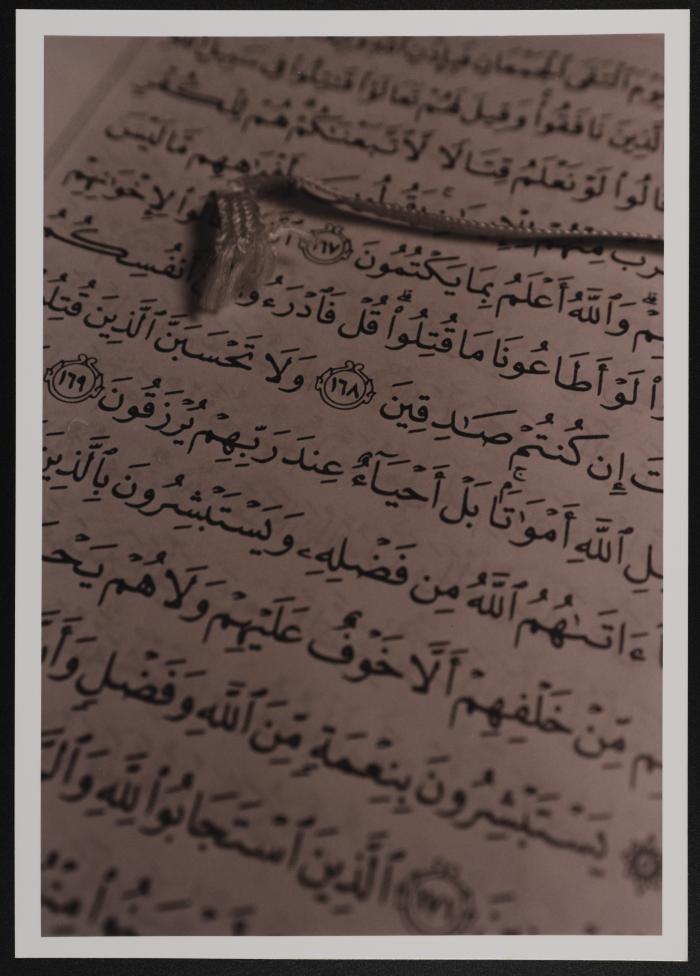 يَوْمَ ٱلْتَقَى ٱلْجَمْعَانِ فَبِإِذْنِ
ٱلَّذِينَ نَافَقُوا۟ وَقِيلَ لَهُمْ تَعَالَوْا۟ قَٰتِلُوا۟ فِى سَبِيلِ ٱللَّهِ
قَالُوا۟ لَوْ نَعْلَمُ قِتَالًا لَّٱتَّبَعْنَٰكُمْ هُمْ لِلْكُفْرِ
مِنْهُمْ بِأَفْوَٰهِهِم مَّا لَيْسَ
وَٱللَّهُ أَعْلَمُ بِمَا يَكْتُمُونَ ١٦٧ لِإِخْوَٰنِهِمْ
لَوْ أَطَاعُونَا مَا قُتِلُوا۟ ۗ قُلْ فَٱدْرَءُو أَنفُسِكُمُ
إِن كُنتُمْ صَٰدِقِينَ ١٦٨ وَلَا تَحْسَبَنَّ ٱلَّذِينَ قُتِلُ
ٱللَّهِ أَمْوَٰتًۢا ۚ بَلْ أَحْيَآءٌ عِندَ رَبِّهِمْ يُرْزَقُونَ ١٦٩
ءَاتَىٰهُمُ ٱللَّهُ مِن فَضْلِهِۦ وَيَسْتَبْشِرُونَ بِٱلَّذِينَ
مِّنْ خَلْفِهِمْ أَلَّا خَوْفٌ عَلَيْهِمْ وَلَا هُمْ يَحْ
يَسْتَبْشِرُونَ بِنِعْمَةٍ مِّنَ ٱللَّهِ وَفَضْلٍ وَأَنَّ
١٧١ ٱلَّذِينَ ٱسْتَجَابُوا۟ لِلَّهِ وَٱلرَّ